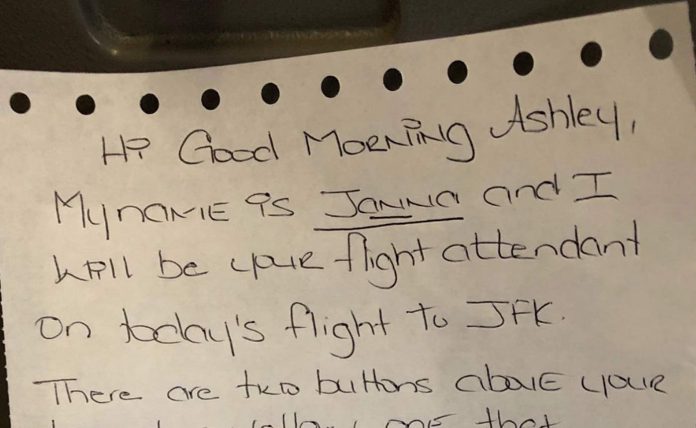 Hi Good Morning Ashley,
My name is Janna and I
will be your flight attendant
on today's flight to JFK.
There are two buttons above your
one that